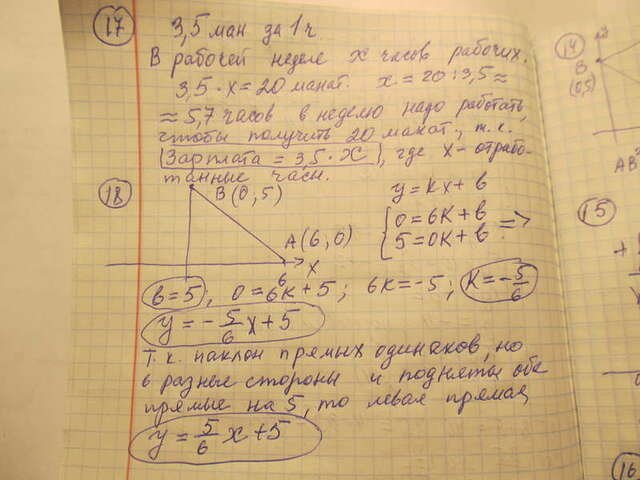 14
B
(0,5)
AB²
15
16
17
3,5 ман за 1ч.
В рабочей неделе x часов рабочих.
3,5·x=20 манат. x=20:3,5≈
≈5,7 часов в неделю надо работать
чтобы получить 20 манат, т.к.
Зарплата=3,5·x, где x-отрабо-
танные часы.
18
B(0,5)
A(6,0)
x
y=kx+b
{0=6k+b
{5=0k+b =>
b=5, 0=6k+5; 6k=-5; k=-5/6
y=-5/6x+5
Т.к. наклон прямых одинаков, но
в разные стороны и поднята обе
прямые на 5, то левая прямая
y=5/6x+5